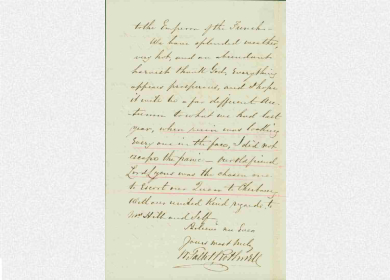 to the Emperor of the French –
We have splendid weather,
very hot, and an abundant
harvest thank God, everything
appears prosperous, and I hope
it will be a far different
to what we had last
year, when ruin was looking
every one in the face, I did not
escape the panic – our old friend
Lord Lyons was the chosen one
to Escort our Queen to Cherbourg
With our united kind regards to
Mrs and Self
Believe me Ever
Yours most truly